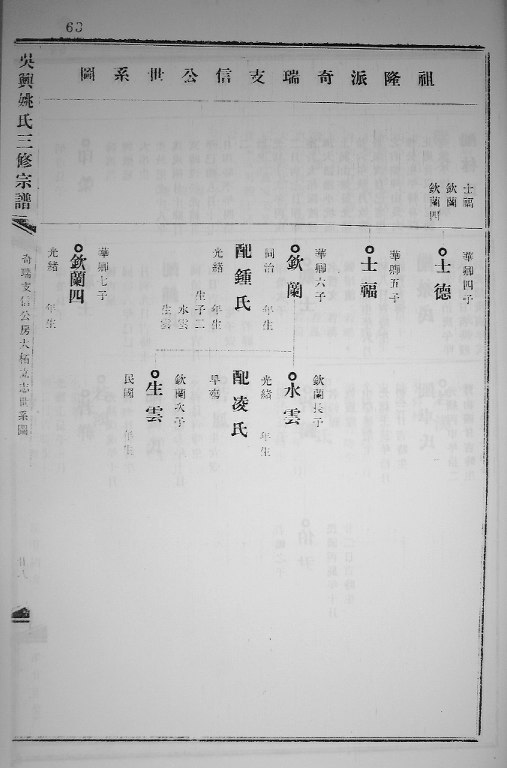 63
祖隆派奇瑞支信公世系圖
士福
欽蘭
欽蘭四
華卿四子
士德
華卿五子
士福
華卿六子
欽蘭
同治 年生
配鍾氏
光緒 年生
生子二
水雲
生雲
華卿七子
欽蘭四
光緒 年生
欽蘭長子
水雲
光緒 年生
配凌氏
早殤
欽蘭次子
生雲
民國 年生
吳興姚氏三修宗譜
奇瑞支信公房大楊立志世系圖